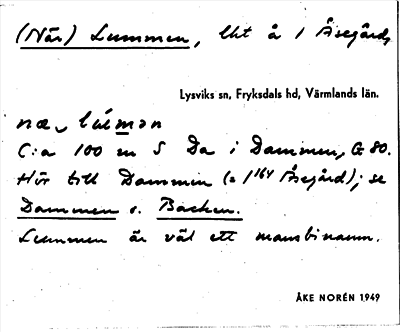 (När) Lummen, lht å 1 Åsegård,
Lysviks sn, Fryksdals hd, Värmlands län.
C:a 100 m S Da i Dammen, G 80.
Hör till Dammen (= 1164 Åsegård); se
Dammen o. Backen.
Lummen är väl ett mansbinamn.
ÅKE NORÉN 1949